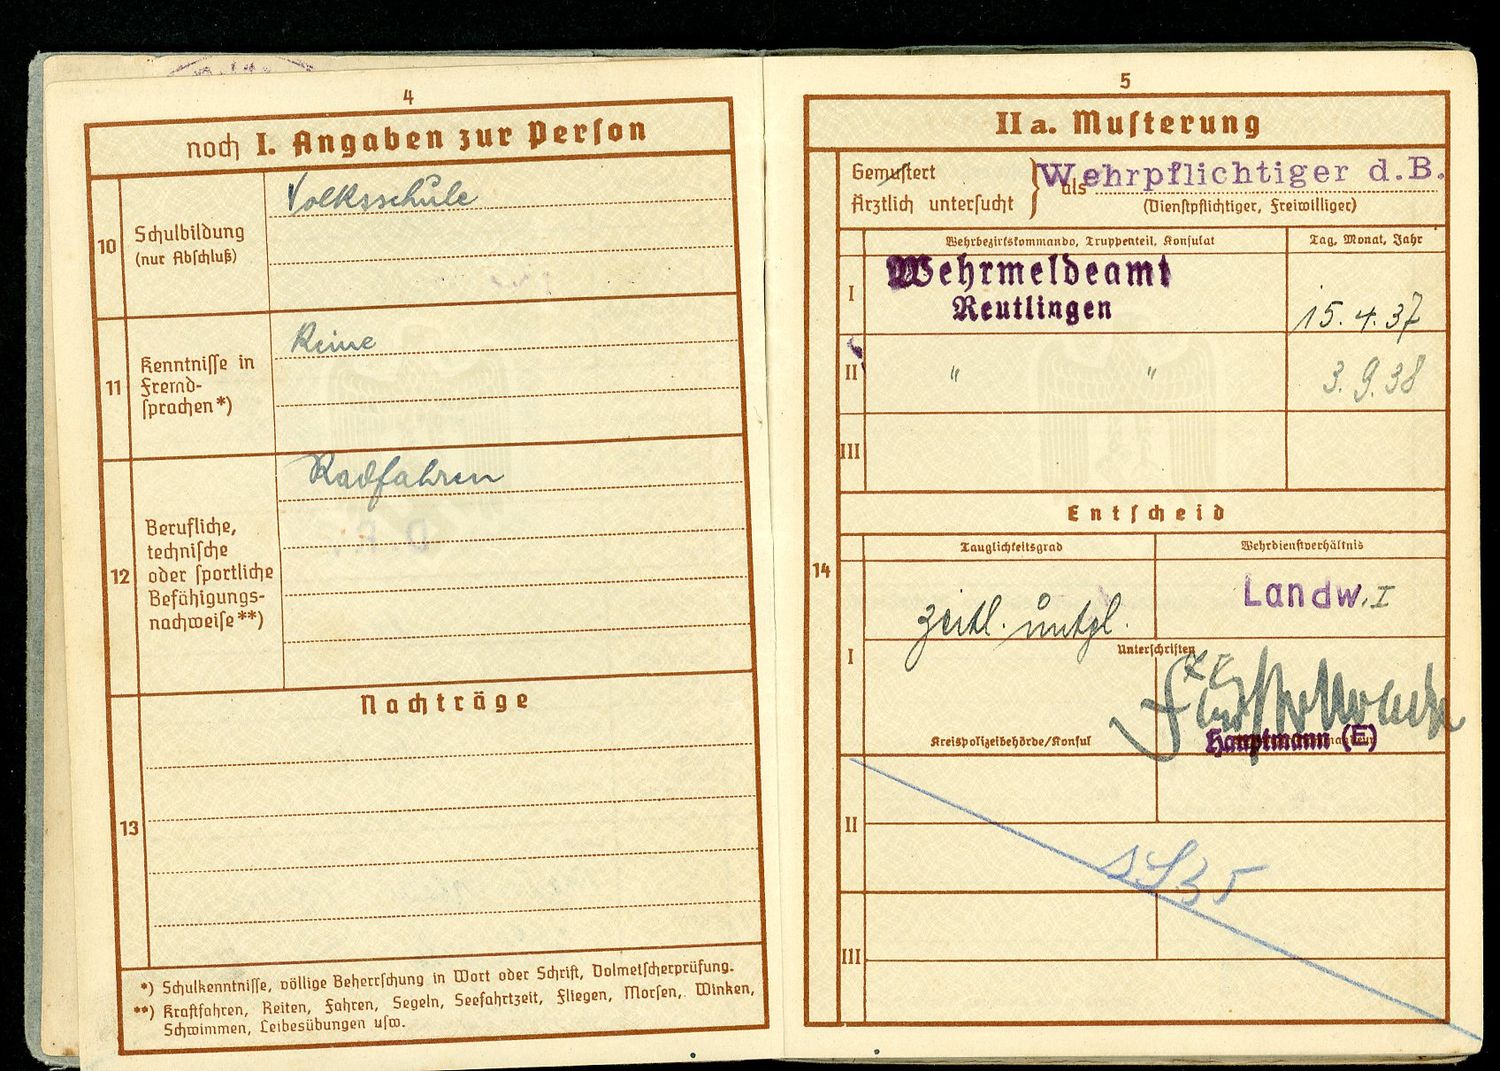 4
noch I. Angaben zur Person
10
Schulbildung
(nur Abschluß)
Volksschule
11
Kenntnisse in
Fremd-
sprachen*)
Keine
12
Berufliche,
technische
oder sportliche
Befähigungs-
nachweise**)
Radfahren
Nachträge
13
*) Schulkenntnisse, völlige Beherrschung in Wort oder Schrift, Dolmetscherprüfung.
**) Kraftfahren, Reiten, Fahren, Segeln, Seefahrtzeit, Fliegen, Morsen, Winken,
Schwimmen, Leibesübungen usw.
5
IIa. Musterung
Gemustert
Ärztlich untersucht
als
Wehrpflichtiger d.B.
(Dienstpflichtiger, Freiwilliger)
Wehrbezirkskommando, Truppenteil, Konsulat
Tag, Monat, Jahr
I
Wehrmeldeamt
Reutlingen
15.4.37
II
" "
3.9.38
III
Entscheid
14
Tauglichkeitsgrad
Wehrdienstverhältnis
I
zeitl. untgl.
Landw. I
Unterschriften
Kreispolizeibehörde/Konsul
Hauptmann (E)
II
s. S. 35
III